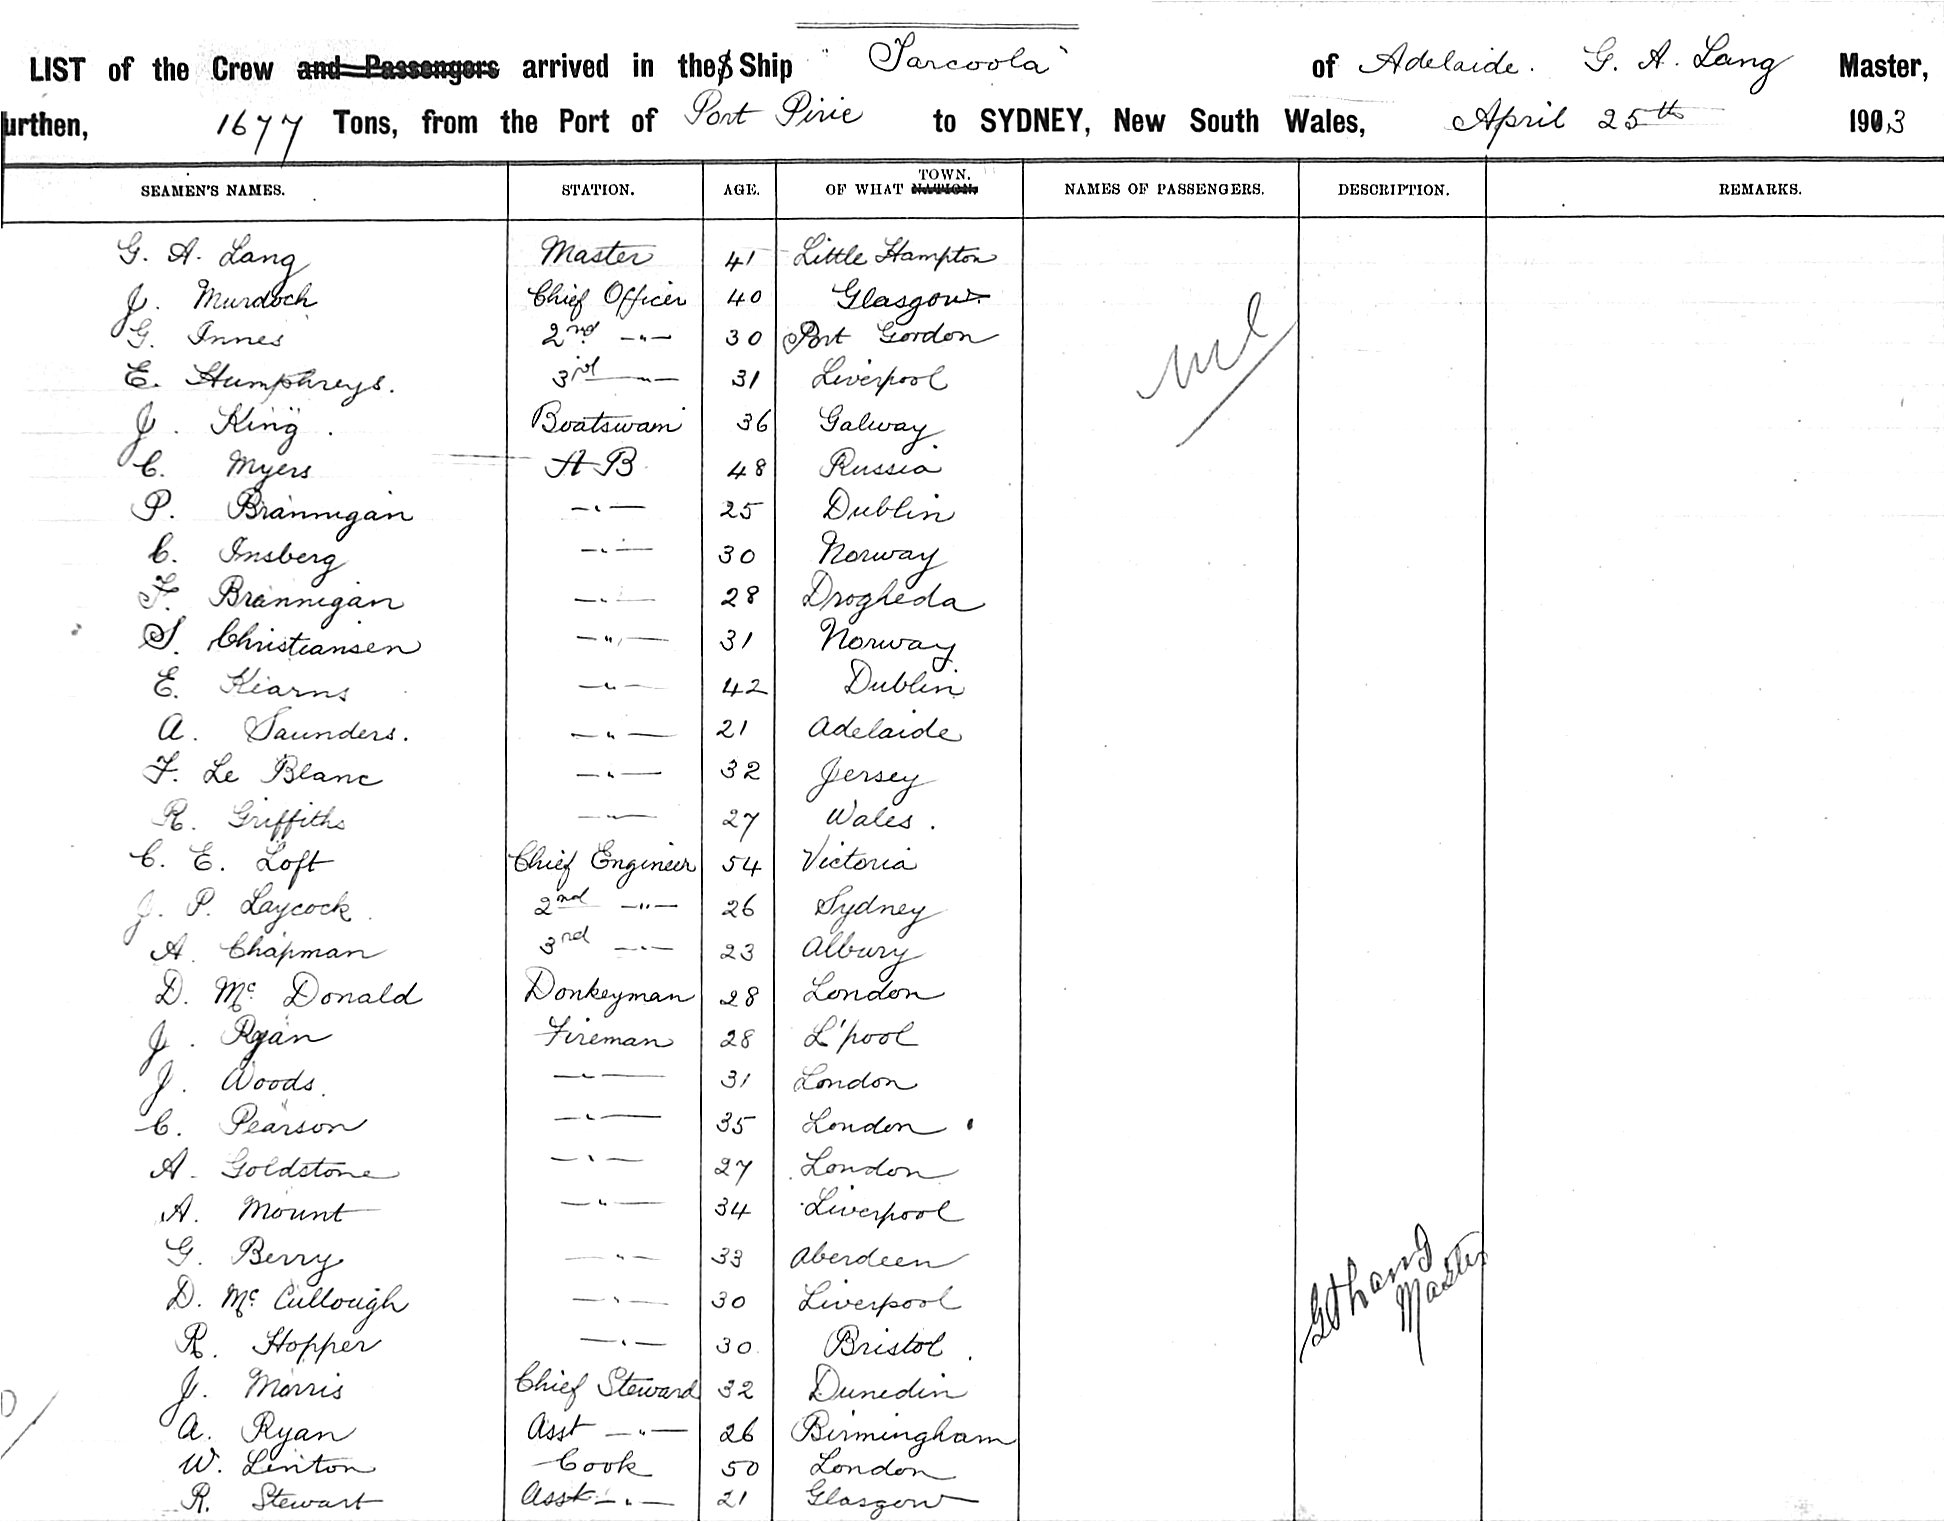 LIST of the Crew and Passengers arrived in the S Ship "Tarcoola" of Adelaide. G. A. Lang Master,
urthen, 1677 Tons, from the Port of Port Pirie to SYDNEY, New South Wales, April 25th 1903
SEAMEN'S NAMES. STATION. AGE. OF WHAT NATION. TOWN. NAMES OF PASSENGERS. DESCRIPTION. REMARKS.
G. A. Lang Master 41 Little Hampton
J. Murdoch Chief Officer 40 Glasgow
G. Innes 2nd —"— 30 Port Gordon
E. Humphreys. 3rd —"— 31 Liverpool
J. King. Boatswain 36 Galway
C. Myers A B 48 Russia
P. Brannigan —"— 25 Dublin
C. Insberg —"— 30 Norway
F. Brannigan —"— 28 Drogheda
S. Christiansen —"— 31 Norway
E. Kearns —"— 42 Dublin
A. Saunders. —"— 21 Adelaide
F. Le Blanc —"— 32 Jersey
R. Griffiths —"— 27 Wales.
C. E. Loft Chief Engineer 54 Victoria
J. P. Laycock 2nd —"— 26 Sydney
A. Chapman 3rd —"— 23 Albury
D. Mc Donald Donkeyman 28 London
J. Ryan Fireman 28 L'pool
J. Woods. —"— 31 London
C. Pearson —"— 35 London
A. Goldstone —"— 27 London
A. Mount —"— 34 Liverpool
G. Berry —"— 33 Aberdeen
D. Mc Cullough —"— 30 Liverpool
R. Hopper —"— 30 Bristol.
J. Morris Chief Steward 32 Dunedin
A. Ryan Asst —"— 26 Birmingham
W. Linton Cook 50 London
R. Stewart Asst —"— 21 Glasgow
nil
G A Lang
Master